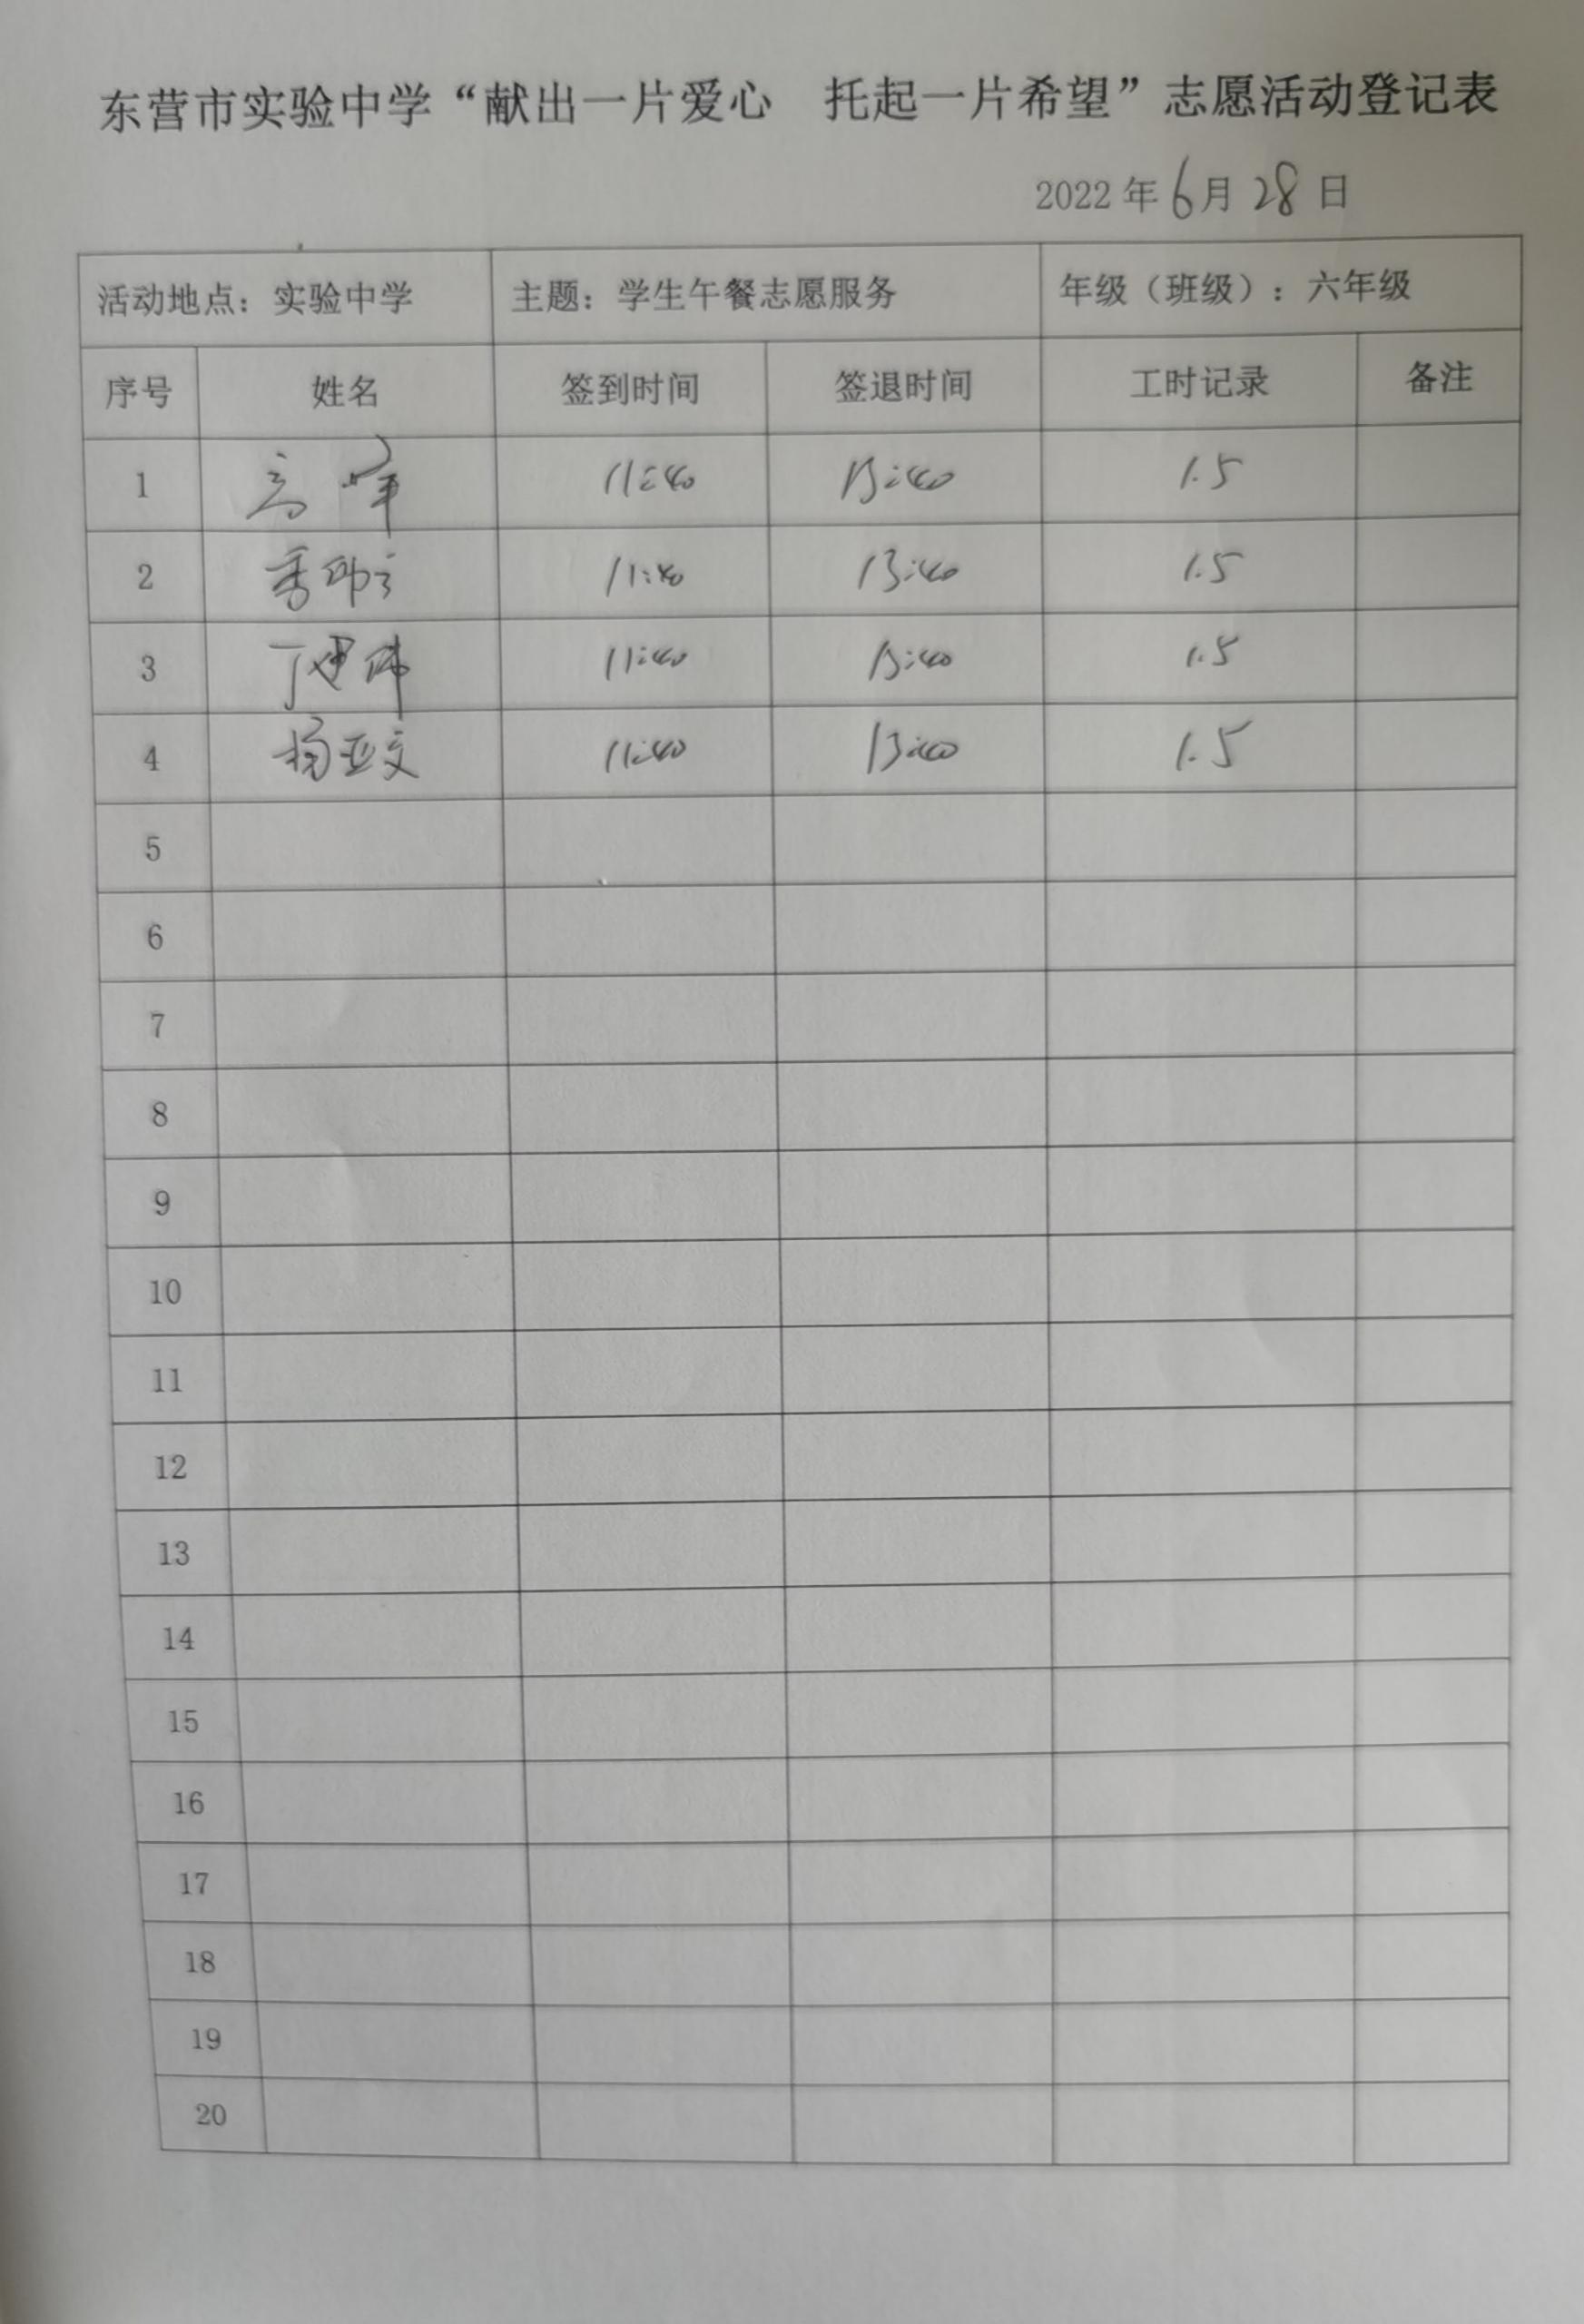 东营市实验中学“献出一片爱心 托起一片希望”志愿活动登记表
2022年6月28日
活动地点：实验中学 主题：学生午餐志愿服务 年级（班级）：六年级
序号 姓名 签到时间 签退时间 工时记录 备注
1 高峰 11:40 13:00 1.5
2 11:40 13:00 1.5
3 丁建伟 11:40 13:00 1.5
4 杨亚文 11:40 13:00 1.5
5
6
7
8
9
10
11
12
13
14
15
16
17
18
19
20